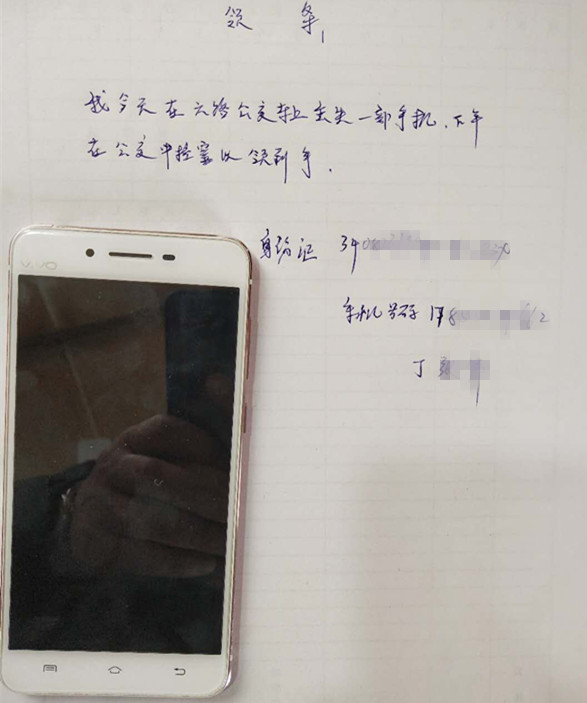 领 条
我今天在六路公交车上丢失一部手机,下午
在公交中控室以领到手.
身份证 34
手机号码 18
丁
vivo